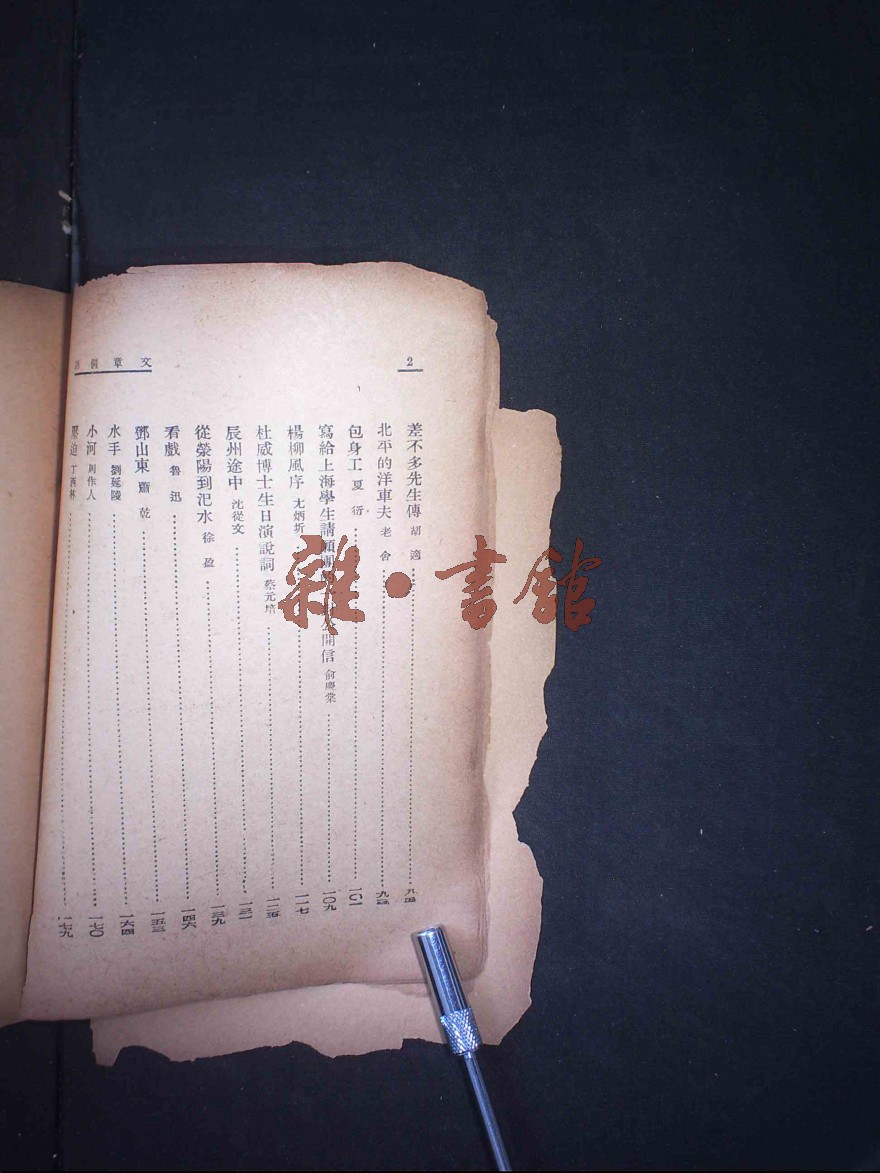 文章個
2
差不多先生傳 胡適 九四
北平的洋車夫 老舍 九
包身工 夏衍 一〇一
寫給上海學生請願團 公開信 俞慶棠 一〇九
楊柳風序 尤炳圻 一一七
杜威博士生日演說詞 蔡元培 一二五
辰州途中 沈從文 一三一
從滎陽到汜水 徐盈 一三九
看戲 魯迅 一四六
鄧山東 蕭乾 一五三
水手 劉延陵 一六四
小河 周作人 一七〇
壓迫 丁西林 一七九
雜·書館